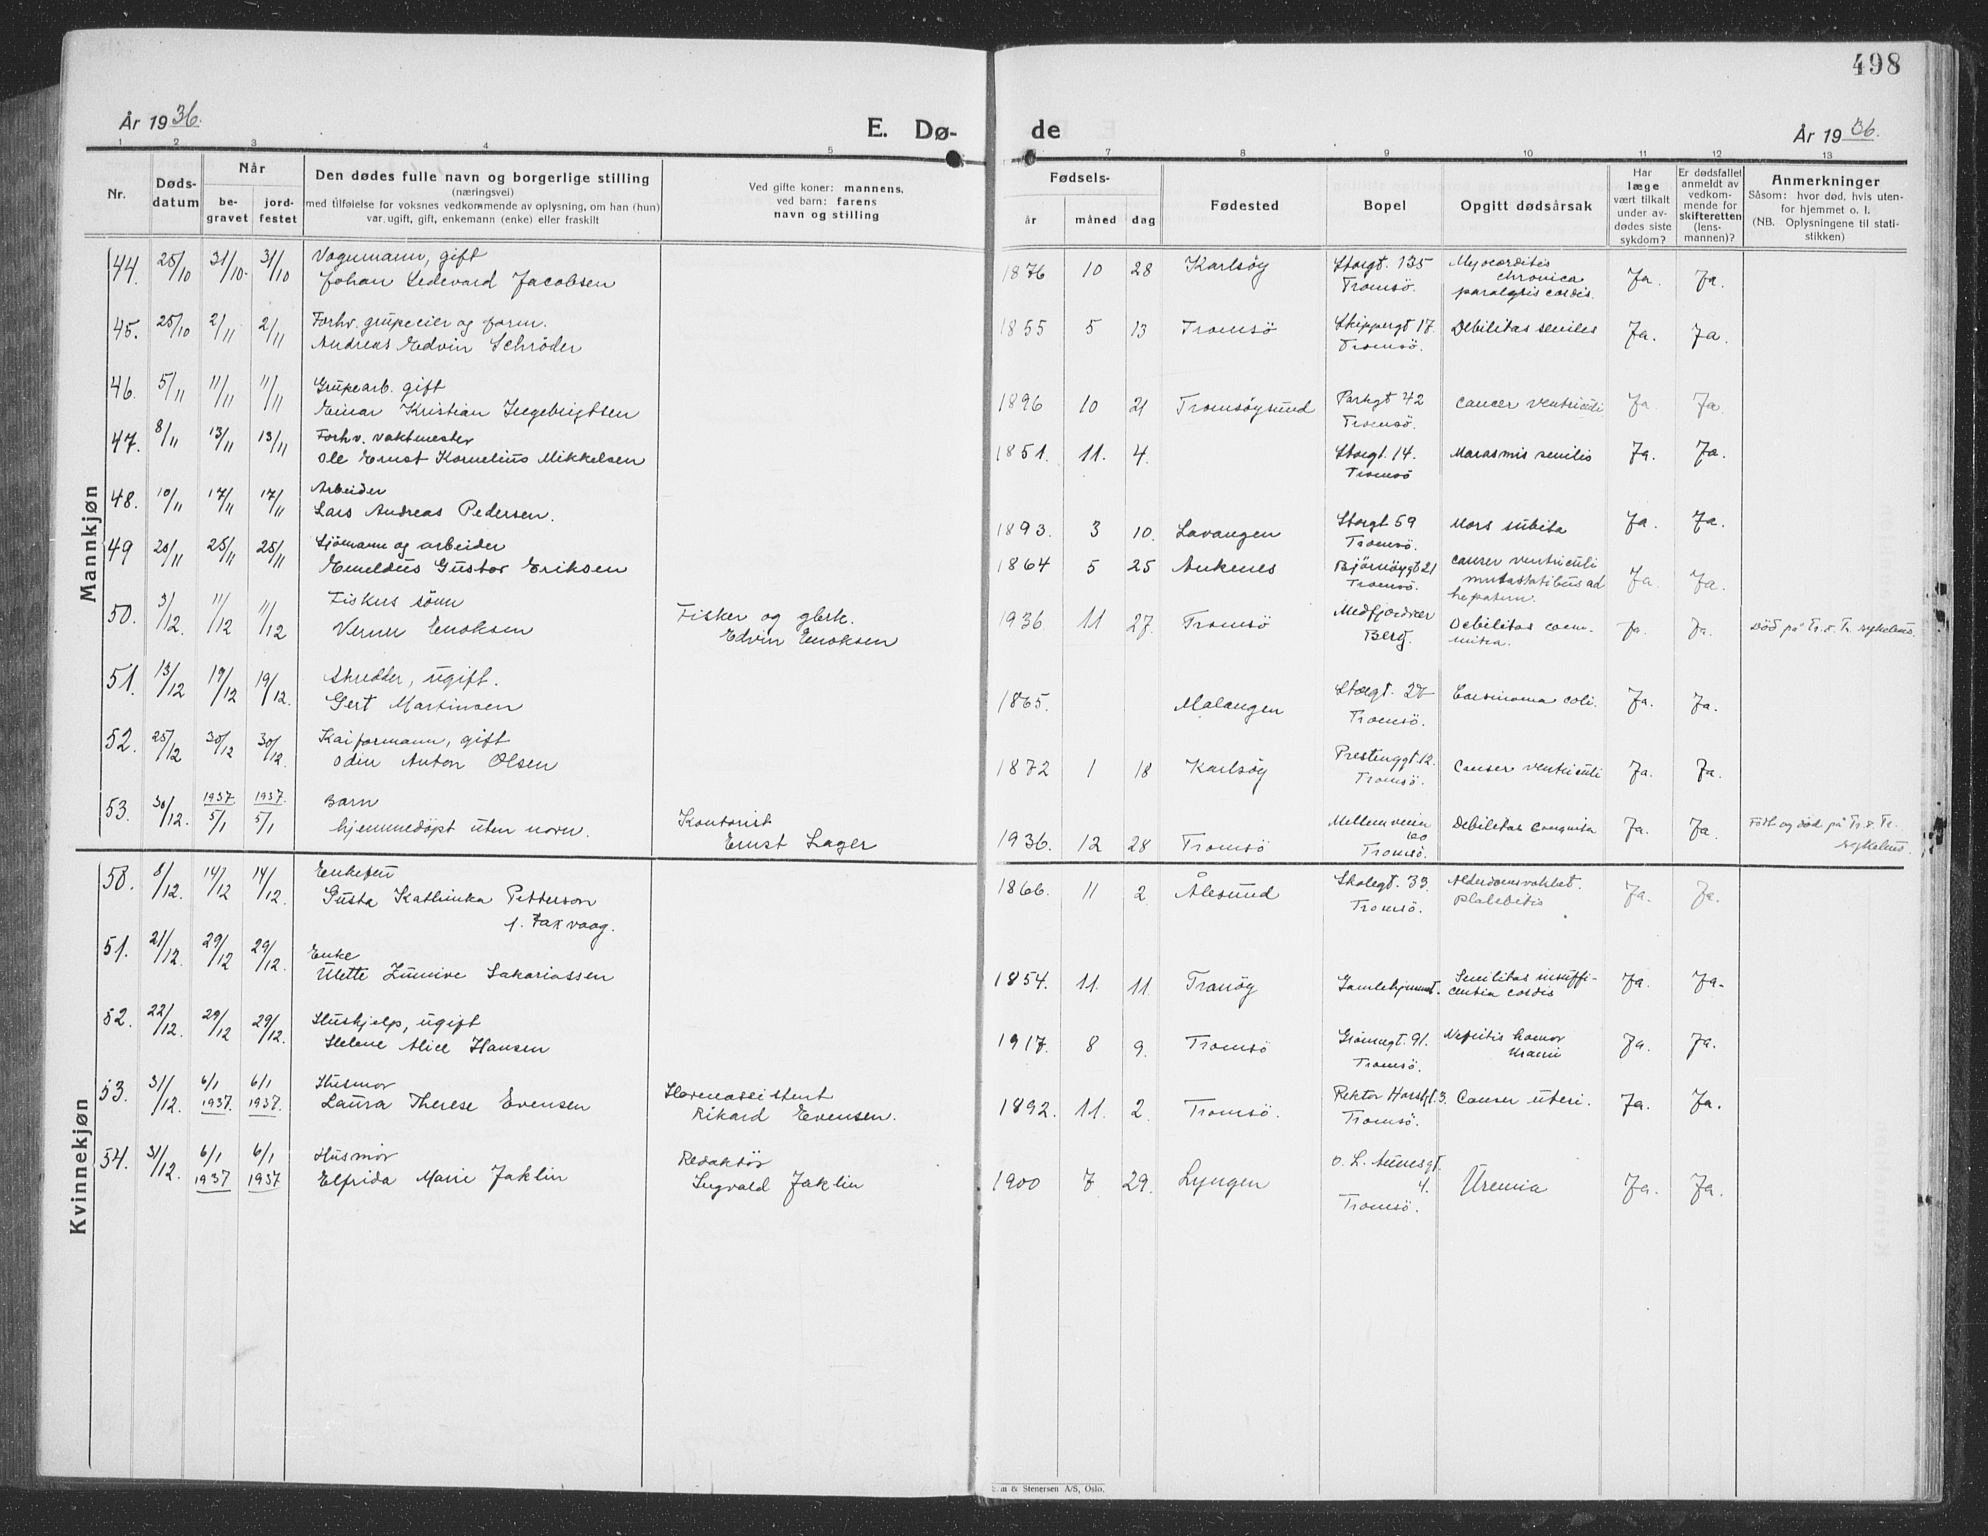 498
År 1936.
E. Dø-
de
År 1936.
1 2 3 4 5 7 8 9 10 11 12 13
Nr.
Døds-
datum
Når
be-
gravet
jord-
festet
Den dødes fulle navn og borgerlige stilling
(næringsvei)
med tilføielse for voksnes vedkommende av oplysning, om han (hun)
var ugift, gift, enkemann (enke) eller fraskilt
Ved gifte koner: mannens,
ved barn: farens
navn og stilling
Fødsels-
år måned dag
Fødested
Bopel
Opgitt dødsårsak
Har
læge
vært tilkalt
under av-
dødes siste
sykdom?
Er dødsfallet
anmeldt av
vedkom-
mende for
skifteretten
(lens-
mannen)?
Anmerkninger
Såsom: hvor død, hvis uten-
for hjemmet o. l.
(NB. Oplysningene til stati-
stikken)
Mannkjøn
44. 25/10 31/10. 31/10 Vognmann, gift
Johan Ledevard Jacobsen
1876 10 28 Karlsøy Storgt. 135
Tromsö. Myocarditis
chronica
paralysis cordis. Ja. Ja.
45. 25/10 2/11 2/11 Forhv. grubeeier og form.
Andreas Edvin Schröder
1855 5 13 Tromsö Skippergt 17.
Tromsö. Debilitas seniles Ja. Ja.
46. 5/11 11/11 11/11 Grubearb. gift
Einar Kristian Ingebrigtsen
1896 10 21 Tromsöysund Parkgt 42
Tromsö. Cancer ventriculi Ja. Ja.
47. 8/11 13/11 13/11 Forhv. vaktmester
Ole Ernst Kornelius Mikkelsen
1851. 11. 4. Storgt. 14.
Tromsö Marasmis senilis Ja. Ja.
48. 10/11 17/11 17/11 Arbeider
Lars Andreas Pedersen.
1893. 3 10. Lavangen Storgt 59
Tromsö. Mors subita Ja. Ja.
49 20/11 25/11 25/11 Sjömann og arbeider
Emeldus Gustav Eriksen
1864 5 25 Ankenes Bjørnöygt 21
Tromsö. Cancer ventriculi
metastatibus ad
hepatem. Ja. Ja.
50. 3/12. 11/12 11/12 Fiskers sönn
Verner Enoksen
Fisker og gbrk.
Edvin Enoksen
1936 11 27. Tromsö Medfjordvær
Berg. Debilitas con-
nita. Ja. Ja. Död på Tr. s. Tr. sykehus.
51. 13/12 19/12 19/12. Skredder, ugift.
Gert Martinsen
1865. Malangen Storgt. 27
Tromsö. Carsinoma coli. Ja. Ja.
52. 25/12 30/12 30/12. Kaiformann, gift
Odin Anton Olsen
1872 1 18 Karlsöy Prestenggt. 12.
Tromsö. Canser ventriculi Ja. Ja.
53. 30/12. 1937. 5/1 1937. 5/1 Barn
hjemmedöpt uten navn.
Kontorist
Ernst Lager
1936. 12 28 Tromsö Mellemveien
60
Tromsö. Debilitas Congenita Ja. Ja. Født og död på Tr. s. Tr.
sykehus.
Kvinnekjøn
50. 8/12. 14/12 14/12. Enkefru
Gusta Kathinka Petterson
f. Taxvaag.
1866. 11 2. Ålesund Skolegt. 33.
Tromsö. Alderdomssvakhet.
Ja. Ja.
51. 21/12. 29/12 29/12. Enke
Ulette Zumive Sakariassen
1854. 11. 11. Tranöy Gamlehjemmet. Senilitas insuffi-
centia cordis Ja. Ja.
52. 22/12. 29/12 29/12. Hushjelp, ugift
Helene Alice Hansen
1917. 8 9. Tromsö Grönnegt. 91.
Tromsö. Nefritis
Ja. Ja.
53. 31/12. 6/1 1937. 6/1 1937. Husmor
Laura Therese Evensen
Havneassistent
Rikard Evensen.
1892. 11. 2. Tromsö. Rektor Horstgt. 3.
Tromsö. Canser uteri. Ja. Ja.
54. 31/12. 6/1 1937 6/1 1937 Husmor
Elfrida Marie Jaklin
Redaktör
Sigvald Jaklin
1900 7 29. Lyngen O. L. Aunesgt.
4.
Tromsö. Uremia Ja. Ja.
& Stenersen A/S, Oslo.